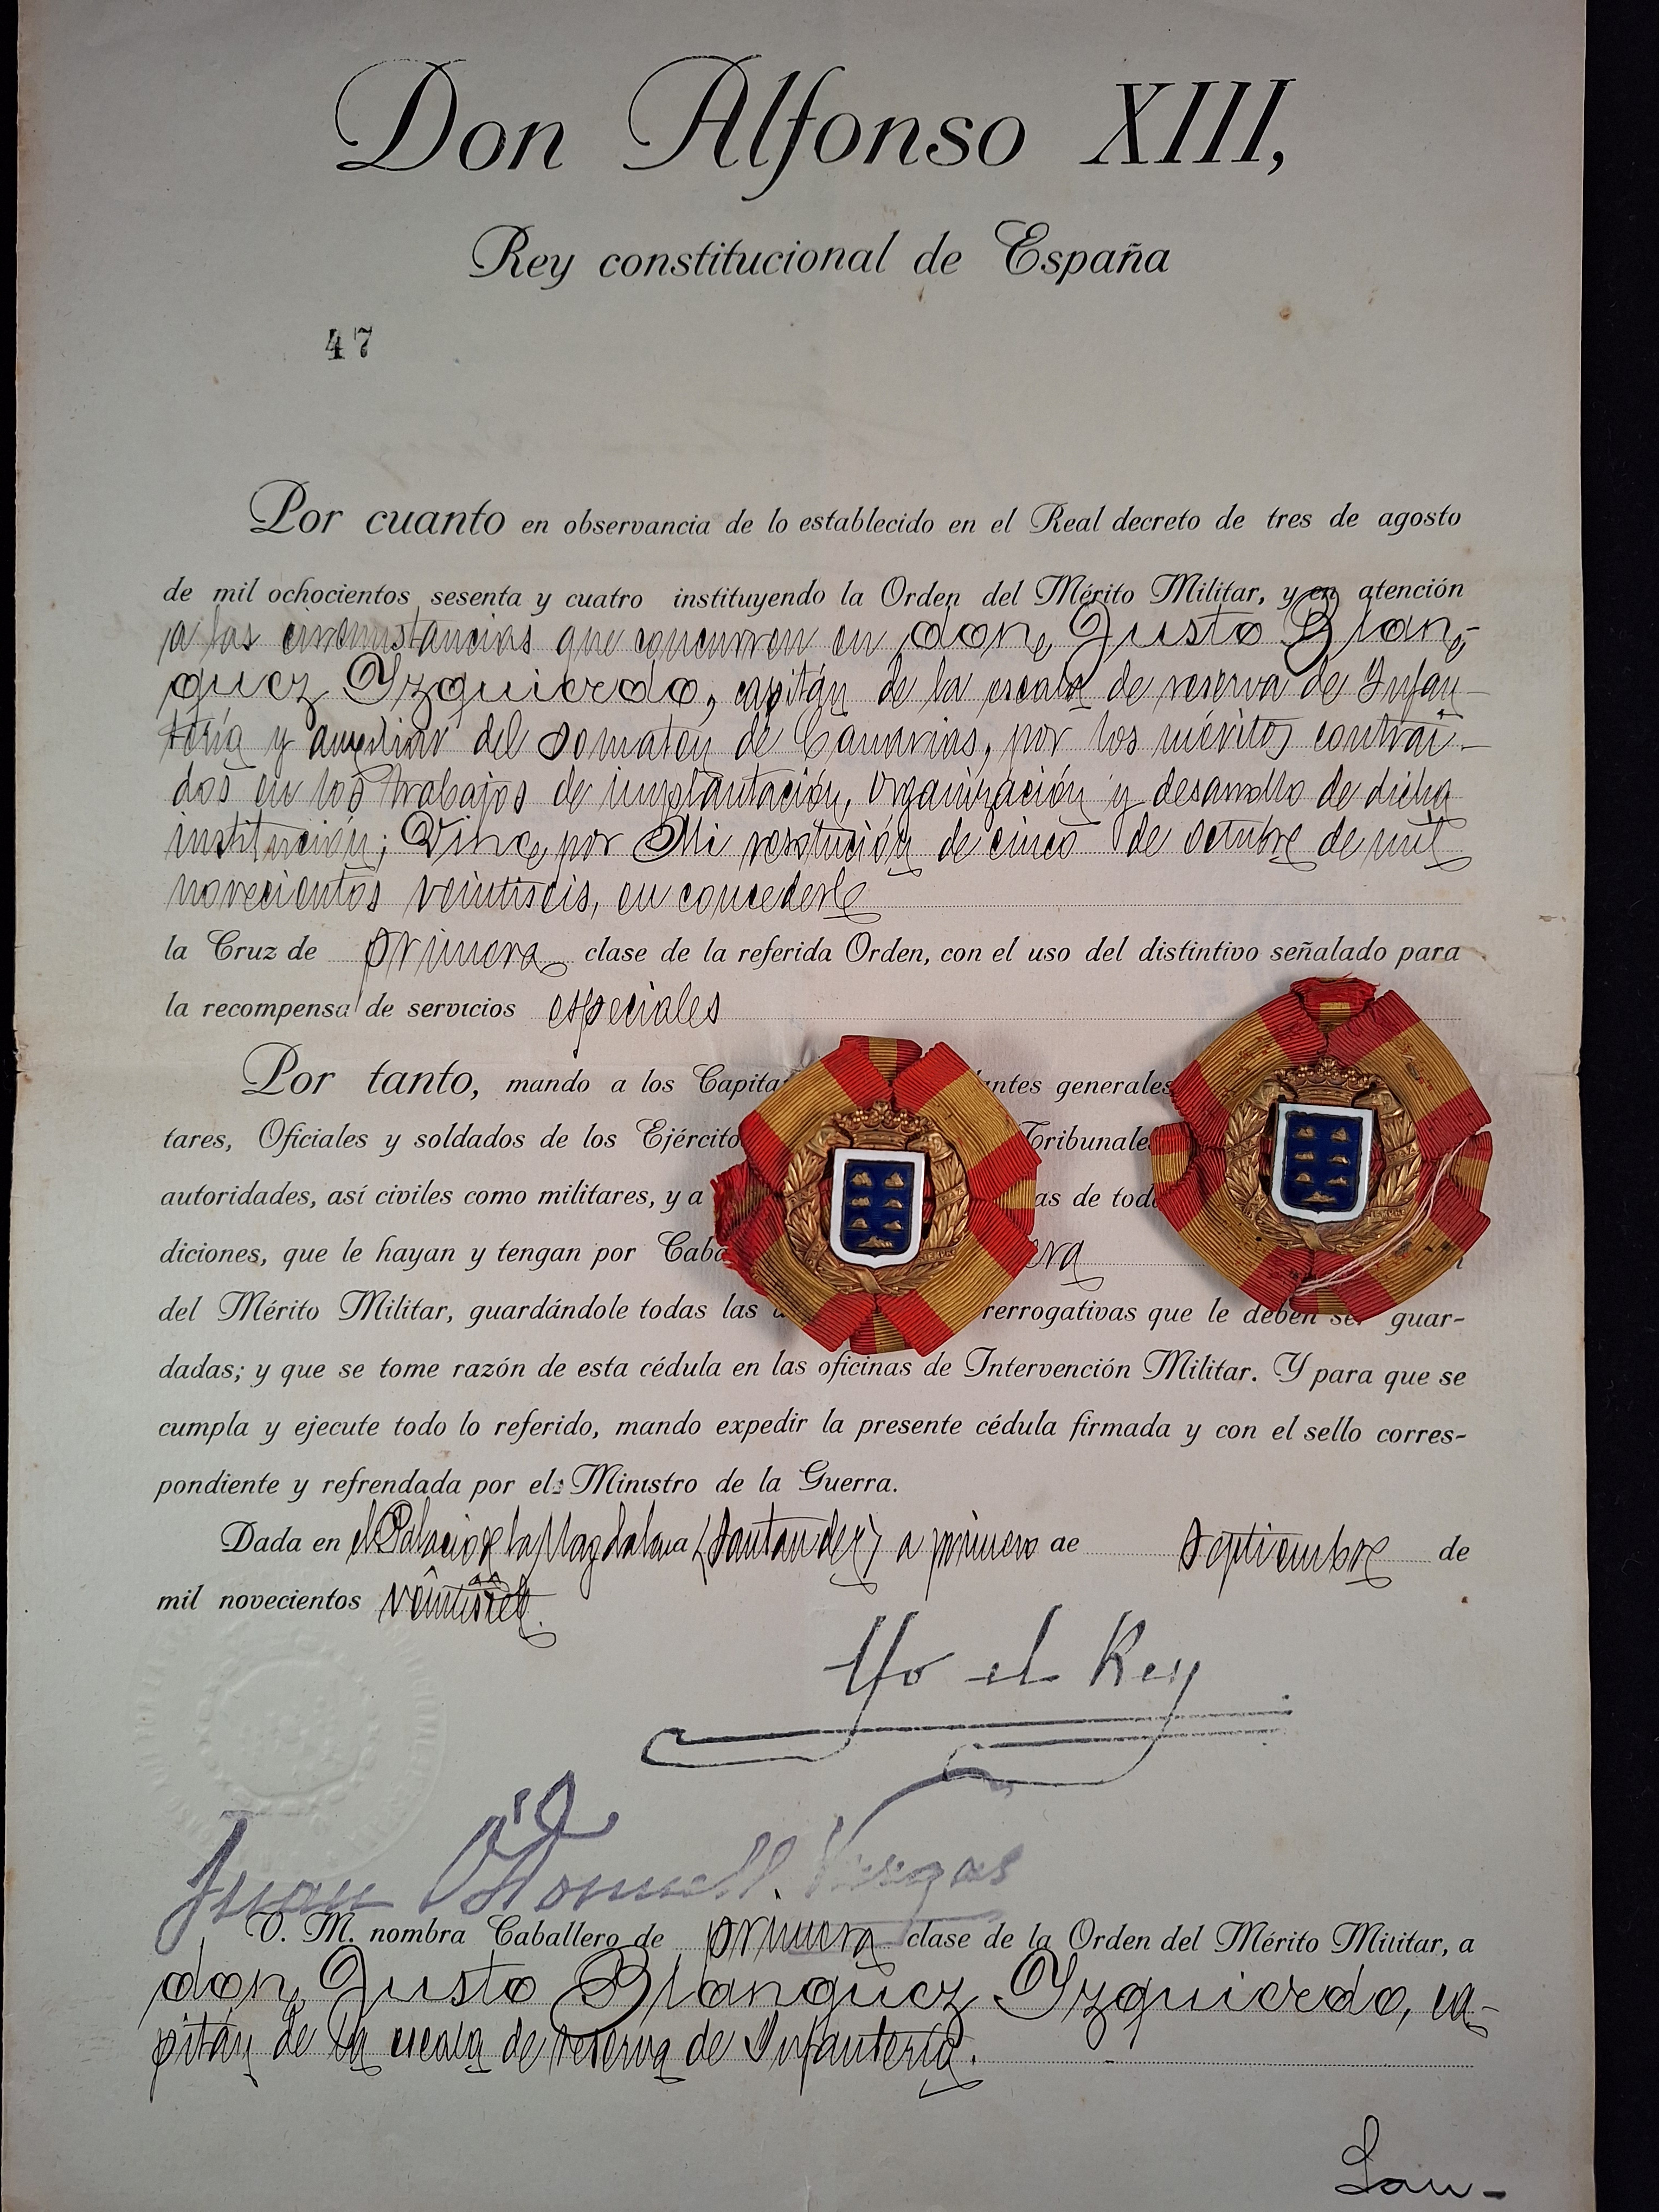 Don Alfonso XIII,
Rey constitucional de España
47
Por cuanto en observancia de lo establecido en el Real decreto de tres de agosto
de mil ochocientos sesenta y cuatro instituyendo la Orden del Mérito Militar, y en atención
a las circunstancias que concurren en don Justo Blan-
quez Yzquierdo, capitán de la escala de reserva de Infan-
tería y auxiliar del Somatén de Canarias, por los méritos contraí-
dos en los trabajos de implantación, organización y desarrollo de dicha
institución; Vine, por Mi resolución de cinco de octubre de mil
novecientos veintiseis, en concederle
la Cruz de primera clase de la referida Orden, con el uso del distintivo señalado para
la recompensa de servicios especiales
Por tanto, mando a los Capita antes generales
tares, Oficiales y soldados de los Ejército Tribunale
autoridades, así civiles como militares, y a as de tod
diciones, que le hayan y tengan por Caba era
del Mérito Militar, guardándole todas las rerrogativas que le deben ser guar-
dadas; y que se tome razón de esta cédula en las oficinas de Intervención Militar. Y para que se
cumpla y ejecute todo lo referido, mando expedir la presente cédula firmada y con el sello corres-
pondiente y refrendada por el Ministro de la Guerra.
Dada en el Palacio de la Magdalena (Santander) a primero de septiembre de
mil novecientos veintisiete.
Yo el Rey
Juan O'Donnell. Vargas
V. M. nombra Caballero de primera clase de la Orden del Mérito Militar, a
don Justo Blanquez Yzquierdo, ca-
pitán de la escala de reserva de Infantería.
San-